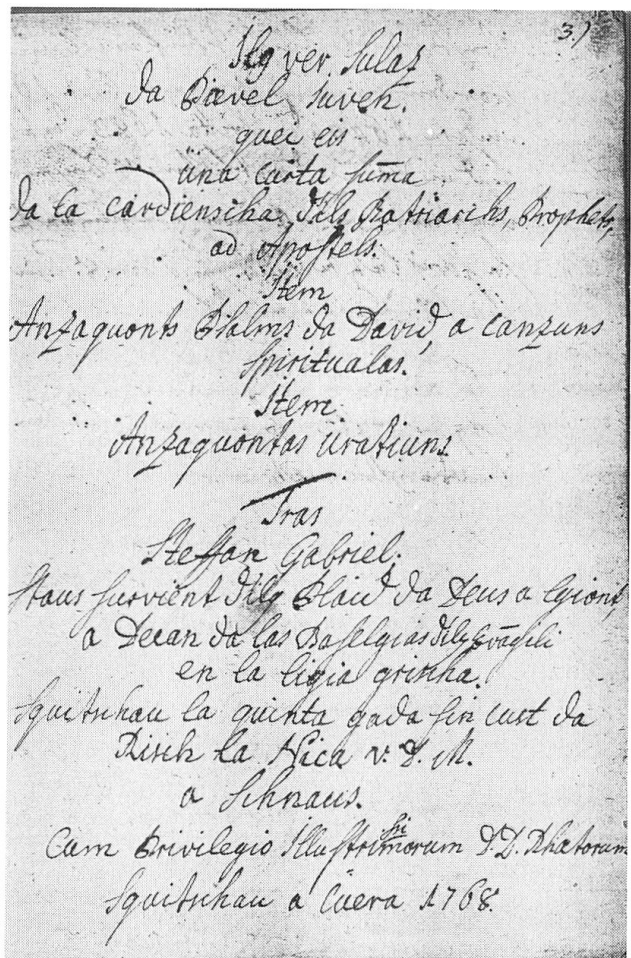 3.)
Ilg ver Sulaz
da Pievel Juven.
quei eis
üna curta suma
da la cardienscha d'ils Patriarchs, Prophets,
ad Apostels.
Item
Anzaquonts Psalms da David, a canzuns
Spiritualas.
Item
Anzaquontas uratiuns.
Tras
Steffan Gabriel.
staus survient d'ilg Plaid da Deus a Lgiont,
a Decan da las Baselgias d'ilg Evāgeli
en la Ligia grischa.
Squitschau la quinta gada sin cust da
Risch la Nica v. D. M.
a Schnaus.
Cum Privilegio Illustrissimorum D.D. Rhætorum
Squitschau a Cuera 1768.